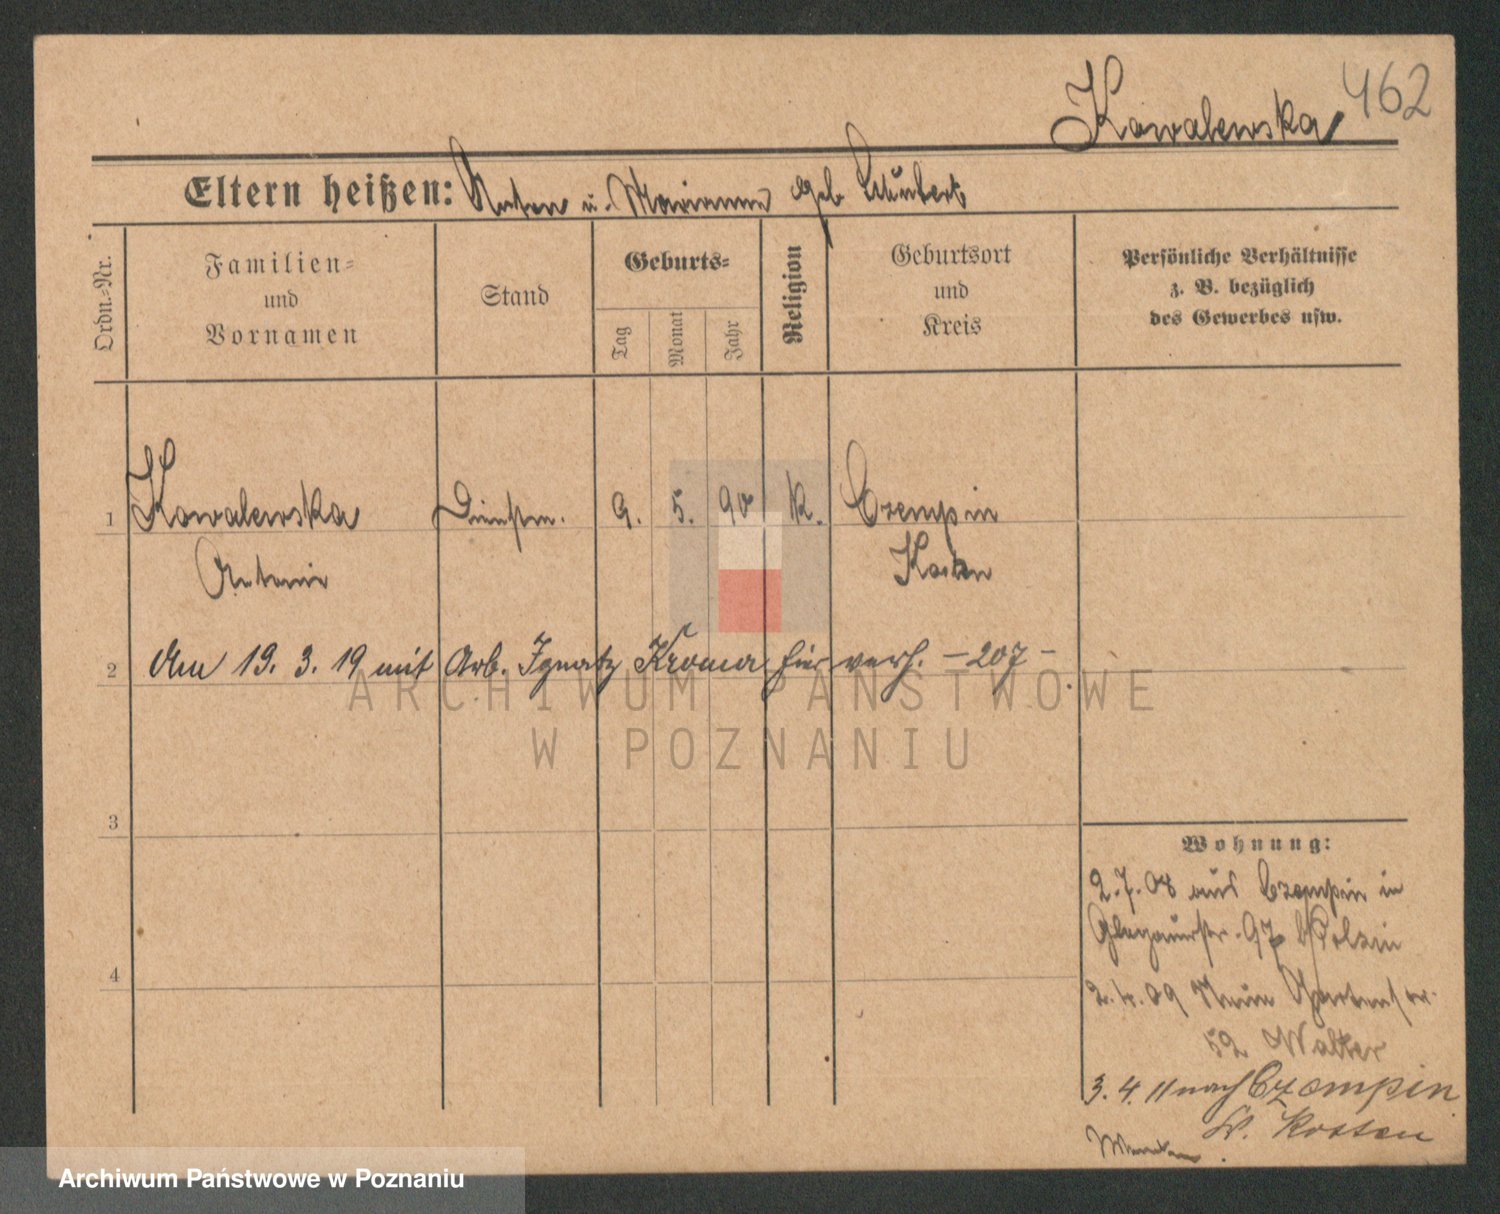 Kowalewska 462
Eltern heißen: Anton u. Marianna geb
Ordn.-Nr.
Familien-
und
Vornamen
Stand
Geburts-
Tag
Monat
Jahr
Religion
Geburtsort
und
Kreis
Persönliche Verhältnisse
z. B. bezüglich
des Gewerbes usw.
1 Kowalewska Dienstm. 9. 5. 90 k. Czempin
Antonie Kosten
2 Am 19. 3. 19 mit Arb. Ignatz Kroma hier verh. – 207 –
3
4
Wohnung:
2.7.08 aus Czempin in
Glogauerstr. 97 b/
2.4.09 Neue Gartenstr.
52 Walter
3. 4. 11 nach Czempin
Kosten
ARCHIWUM PAŃSTWOWE
W POZNANIU
Archiwum Państwowe w Poznaniu